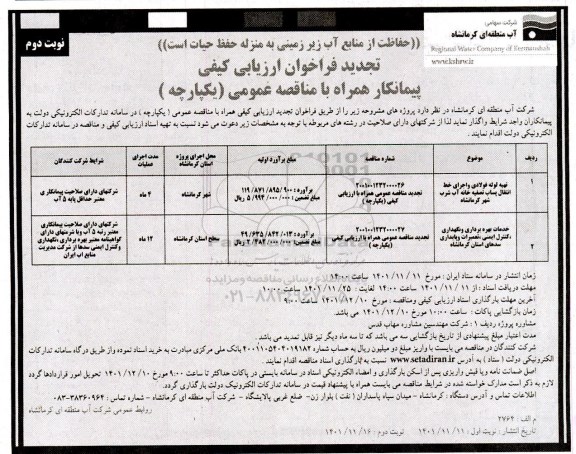 نوبت دوم
شرکت سهامی
آب منطقه‌ای کرمانشاه
Regional Water Company of Kermanshah
www.kshrw.ir
((حفاظت از منابع آب زیر زمینی به منزله حفظ حیات است))
تجدید فراخوان ارزیابی کیفی
پیمانکار همراه با مناقصه عمومی (یکپارچه )
شرکت آب منطقه ای کرمانشاه در نظر دارد پروژه های مشروحه زیر را از طریق فراخوان تجدید ارزیابی کیفی همراه با مناقصه عمومی ( یکپارچه ) در سامانه تدارکات الکترونیکی دولت به
پیمانکاران واجد شرایط واگذار نماید لذا از شرکتهای دارای صلاحیت در رشته های مربوطه با توجه به مشخصات زیر دعوت می شود نسبت به تهیه اسناد ارزیابی کیفی و مناقصه در سامانه تدارکات
الکترونیکی دولت اقدام نمایند .
ردیف موضوع شماره مناقصه مبلغ برآورد اولیه محل اجرای پروژه استان کرمانشاه مدت اجرای عملیات شرایط شرکت کنندگان
۱ تهیه لوله فولادی واجرای خط انتقال پساب تصفیه خانه آب شرب شهر کرمانشاه ۲۰۰۱۰۰۱۲۳۲۰۰۰۰۲۶ تجدید مناقصه عمومی همراه با ارزیابی کیفی (یکپارچه ) برآورد: ۱۱۹/۸۷۱/۸۹۵/۹۰۰ ریال مبلغ تضمین : ۵/۹۹۴/۰۰۰/۰۰۰ ریال شهر کرمانشاه ۴ ماه شرکتهای دارای صلاحیت پیمانکاری معتبر حداقل پایه ۵ آب
۲ خدمات بهره برداری ونگهداری ،کنترل ایمنی ،تعمیرات وپایداری سدهای استان کرمانشاه ۲۰۰۱۰۰۱۲۳۲۰۰۰۰۲۷ تجدید مناقصه عمومی همراه با ارزیابی کیفی (یکپارچه ) برآورد: ۴۹/۶۳۵/۸۴۲/۰۱۳ ریال مبلغ تضمین : ۲/۴۸۲/۰۰۰/۰۰۰ ریال سطح استان کرمانشاه ۱۲ ماه شرکتهای دارای صلاحیت پیمانکاری معتبر رتبه ۵ آب ویا شرکتهای دارای گواهینامه معتبر بهره برداری ،نگهداری وکنترل ایمنی سدها از شرکت مدیریت منابع آب ایران
زمان انتشار در سامانه ستاد ایران : مورخ ۱۴۰۱/۱۱/۱۱ ساعت ۱۴:۰۰
مهلت دریافت اسناد : از ۱۴۰۱/۱۱/۱۱ ساعت ۱۴:۰۰ لغایت ۱۴۰۱/۱۱/۲۵ ساعت ۱۰:۰۰
آخرین مهلت بارگذاری اسناد ارزیابی کیفی ومناقصه : مورخ ۱۴۰۱/۱۲/۱۰ ساعت ۹:۰۰
زمان بازگشایی پاکات : ساعت ۱۰:۰۰ مورخ ۱۴۰۱/۱۲/۱۰ می باشد
مشاوره پروژه ردیف ۱ : شرکت مهندسین مشاوره مهاب قدس
مدت اعتبار مبلغ پیشنهادی از تاریخ بازگشایی سه می باشد که تا سه ماه دیگر نیز قابل تمدید می باشد .
شرکت کنندگان در مناقصه می بایست با واریز مبلغ دو میلیون ریال به حساب شماره ۴۰۰۱۱۰۵۴۰۴۰۱۹۱۸۲ بانک ملی مرکزی مبادرت به خرید اسناد نموده واز طریق درگاه سامانه تدارکات
الکترونیکی دولت ( ستاد ) به آدرس www.setadiran.ir نسبت به بارگذاری اسناد مناقصه اقدام نمایند .
اصل ضمانت نامه ویا فیش واریزی پس از اسکن بارگذاری و امضاء الکترونیکی اسناد در سامانه بایستی در پاکات حداکثر تا ساعت ۹:۰۰ مورخ ۱۴۰۱/۱۲/۱۰ تحویل امور قراردادها گردد
لازم به ذکر است مدارک خواسته شده در شرایط مناقصه می بایست همراه با پیشنهاد قیمت در سامانه تدارکات الکترونیکی دولت بارگذاری گردد.
اطلاعات تماس و آدرس دستگاه : کرمانشاه - میدان سپاه پاسداران ( نفت ) بلوار زن- ضلع غربی پالایشگاه - شرکت آب منطقه ای کرمانشاه - شماره تماس : ۰۸۳-۳۸۳۶۰۹۶۴
روابط عمومی شرکت آب منطقه ای کرمانشاه
م الف : ۲۷۶۴
تاریخ انتشار : نوبت اول : ۱۴۰۱/۱۱/۱۱ نوبت دوم : ۱۴۰۱/۱۱/۱۶